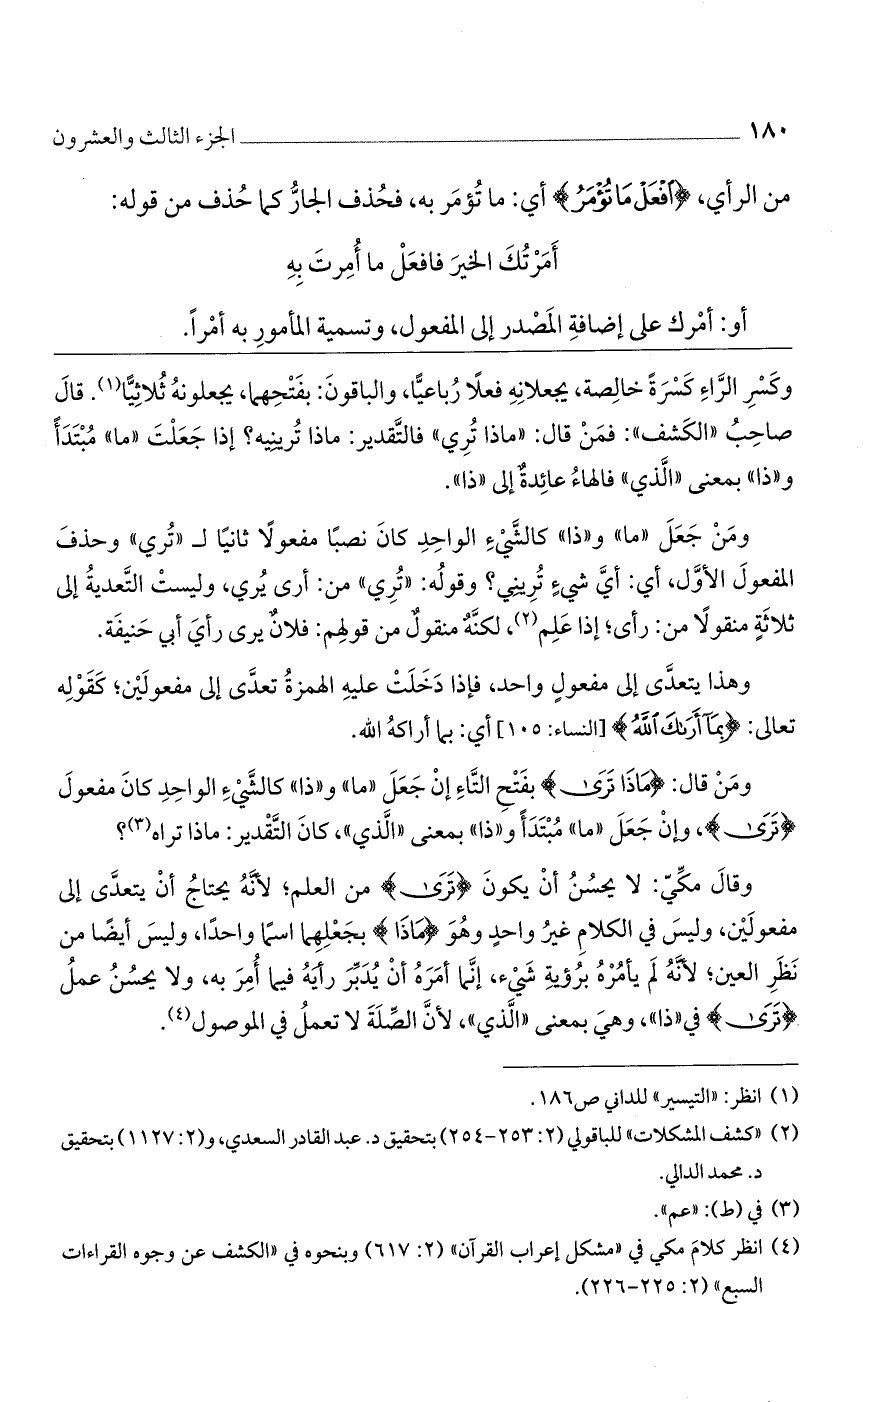 ١٨٠ ــــــــــــــــــــ الجزء الثالث والعشرون
من الرأي، ﴿ٱفۡعَلۡ مَا تُؤۡمَرُ﴾ أي: ما تُؤمَر به، فحُذف الجارُّ كما حُذف من قوله:
أَمَرْتُكَ الخيرَ فافعَلْ ما أُمِرتَ بِهِ
أو: أمْرك على إضافةِ المَصْدر إلى المفعول، وتسمية المأمورِ به أمْراً.
وكَسْرِ الرَّاءِ كَسْرَةً خالِصة، يجعلانِهِ فعلًا رُباعيًّا، والباقونَ: بفَتْحِها، يجعلونهُ ثُلاثِيًّا(١). قالَ
صاحِبُ «الكَشف»: فمَنْ قال: «ماذا تُرِي» فالتَّقدير: ماذا تُرينِيه؟ إذا جَعَلْتَ «ما» مُبْتَدَأً
و«ذا» بمعنى «الَّذي» فالهاءُ عائِدةٌ إلى «ذا».
ومَنْ جَعَلَ «ما» و«ذا» كالشَّيْءِ الواحِدِ كانَ نصبًا مفعولًا ثانيًا لـ «تُري» وحذفَ
المفعولَ الأوَّل، أي: أيَّ شيءٍ تُريني؟ وقولُه: «تُرِي» من: أرى يُري، وليستْ التَّعديةُ إلى
ثلاثَةٍ منقولًا من: رأى؛ إذا عَلِم(٢)، لكنَّهُ منقولٌ من قولهِم: فلانٌ يرى رأيَ أبي حَنيفَة.
وهذا يتعدَّى إلى مفعولٍ واحد، فإذا دَخَلَتْ عليهِ الهمزةُ تعدَّى إلى مفعولَيْن؛ كَقَوْلِه
تعالى: ﴿بِمَآ أَرَىٰكَ ٱللَّهُ﴾ [النساء: ١٠٥] أي: بما أراكهُ الله.
ومَنْ قال: ﴿مَاذَا تَرَىٰ﴾ بفَتْحِ التَّاءِ إنْ جَعَلَ «ما» و«ذا» كالشَّيْءِ الواحِدِ كانَ مفعولَ
﴿تَرَىٰ﴾، وإنْ جَعَلَ «ما» مُبْتَدَأً و«ذا» بمعنى «الَّذي»، كانَ التَّقْدير: ماذا تراه(٣)؟
وقالَ مكِّيّ: لا يحسُنُ أنْ يكونَ ﴿تَرَىٰ﴾ من العلم؛ لأنَّهُ يحتاجُ أنْ يتعدَّى إلى
مفعولَيْن، وليسَ في الكلامِ غيرُ واحدٍ وهُوَ ﴿مَاذَا﴾ بجَعْلِهما اسمًا واحدًا، وليسَ أيضًا من
نَظَرِ العين؛ لأنَّهُ لَم يأمُرْهُ برُؤيةِ شَيْء، إنَّما أمَرَهُ أنْ يُدَبِّرَ رأيَهُ فيما أُمِرَ به، ولا يحسُنُ عملُ
﴿تَرَىٰ﴾ في«ذا»، وهيَ بمعنى «الَّذي»، لأنَّ الصِّلَةَ لا تعملُ في الموصول(٤).
(١) انظر: «التيسير» للداني ص١٨٦.
(٢) «كشف المشكلات» للباقولي (٢: ٢٥٣-٢٥٤) بتحقيق د. عبد القادر السعدي، و(٢: ١١٢٧) بتحقيق
د. محمد الدالي.
(٣) في (ط): «عم».
(٤) انظر كلامَ مكي في «مشكل إعراب القرآن» (٢: ٦١٧) وبنحوه في «الكشف عن وجوه القراءات
السبع» (٢: ٢٢٥-٢٢٦).